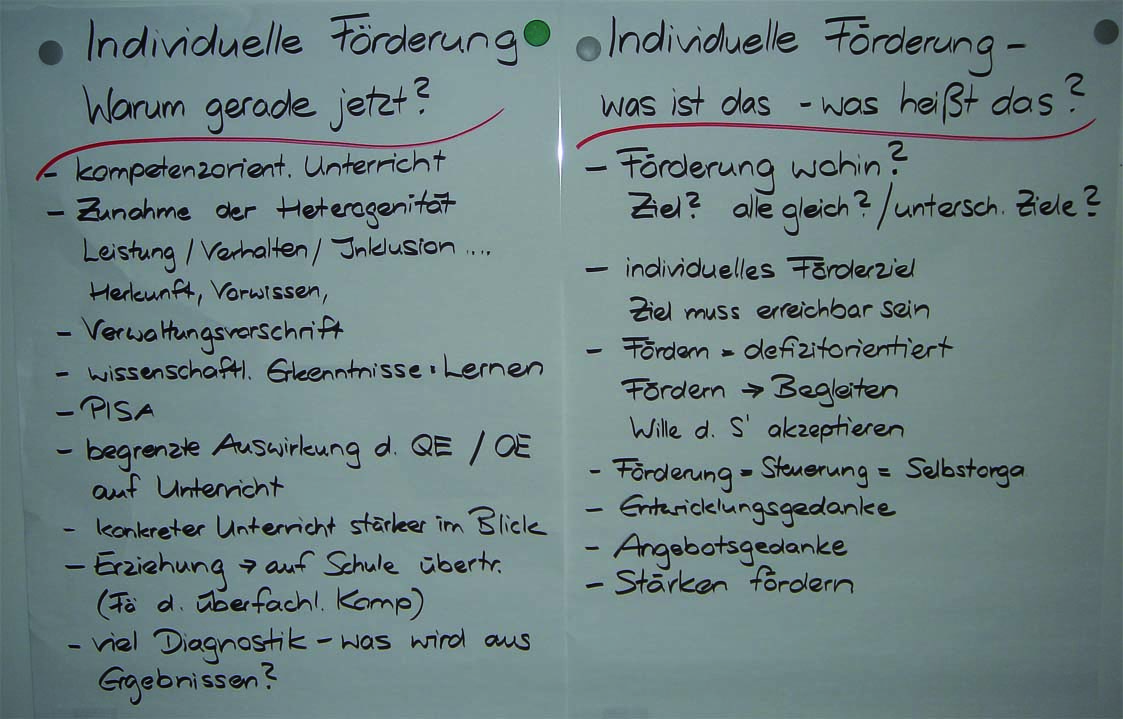 Individuelle Förderung
Warum gerade jetzt?
- kompetenzorient. Unterricht
- Zunahme der Heterogenität
Leistung / Verhalten / Inklusion ....
Herkunft, Vorwissen,
- Verwaltungsvorschrift
- wissenschaftl. Erkenntnisse: Lernen
- PISA
- begrenzte Auswirkung d. QE / OE
auf Unterricht
- konkreter Unterricht stärker im Blick
- Erziehung → auf Schule übertr.
(Fö d. überfachl. Komp)
- viel Diagnostik - was wird aus
Ergebnissen?
Individuelle Förderung -
was ist das - was heißt das?
- Förderung wohin?
Ziel? alle gleich? / untersch. Ziele?
- individuelles Förderziel
Ziel muss erreichbar sein
- Fördern = defizitorientiert
Fördern → Begleiten
Wille d. S' akzeptieren
- Förderung = Steuerung = Selbstorga
- Entwicklungsgedanke
- Angebotsgedanke
- Stärken fördern